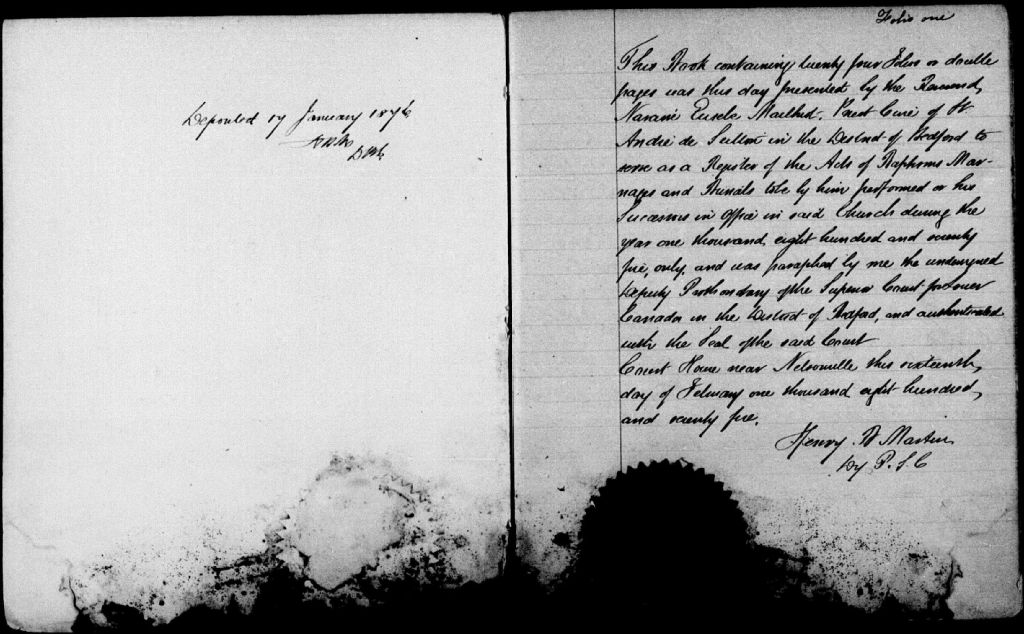 Deposited 17 January 1876
Folio one
This Book containing twenty four Folios or double
pages was this day presented by the Reverend,
Eusebe Priest Curé of St.
André de Sutton in the District of Bedford to
serve as a Register of the Acts of Baptisms Mar-
riages and Burials to be by him performed or his
Successors in Office in said Church during the
year one thousand eight hundred and seventy
five, only, and was paraphed by me the undersigned
Deputy Prothonotary of the Superior Court for Lower
Canada in the District of Bedford, and authenticated
with the Seal of the said Court
Court House near Nelsonville this sixteenth,
day of February one thousand eight hundred,
and seventy five.
Henry Martin
Dy P. S. C